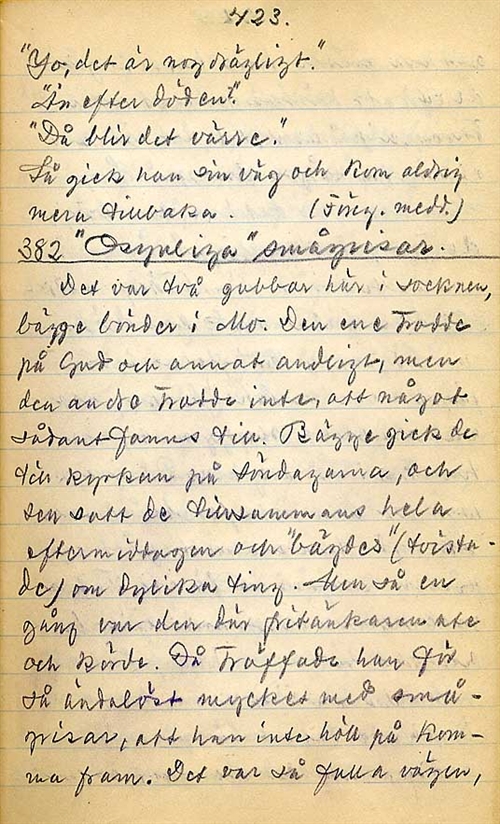 423.
"Jo, det är nog drägligt."
"Än efter döden?"
"Då blir det värre."
Så gick han sin väg och kom aldrig
mera tillbaka. (Föreg. medd.)
382 "Osynliga" smågrisar.
Det var två gubbar här i socknen,
bägge bönder i Mo. Den ene trodde
på Gud och annat andligt, men
den andra trodde inte, att något
sådant fanns till. Bägge gick de
till kyrkan på söndagarna, och
sen satt de tillsammans hela
eftermiddagen och "bägdes" (tvista-
de) om dylika ting. Men så en
gång var den där fritänkaren ute
och körde. Då träffade han för
så ändalöst mycket med små-
grisar, att han inte höll på kom-
ma fram. Det var så fulla vägen,